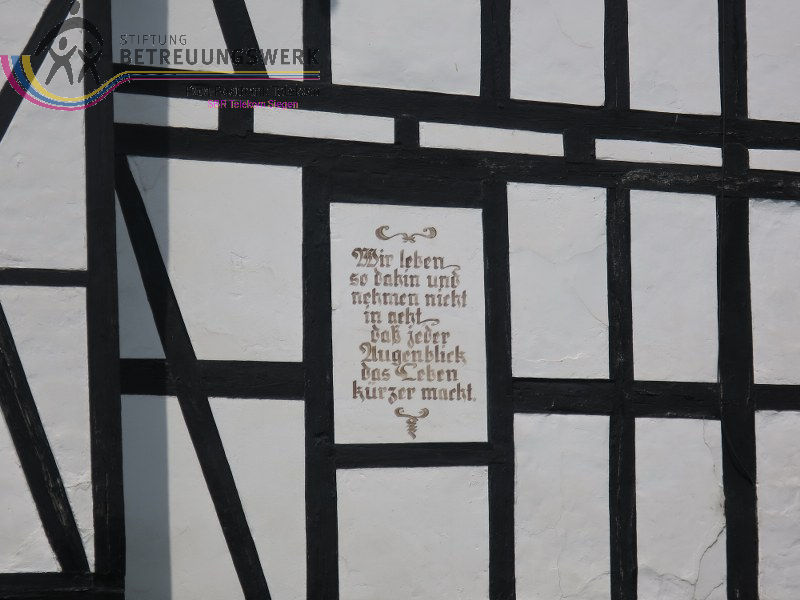 STIFTUNG
BETREUUNGSWERK
Post Postbank Telekom
SBR Telekom Siegen
Wir leben
so dahin und
nehmen nicht
in acht
daß jeder
Augenblick
das Leben
kürzer macht.